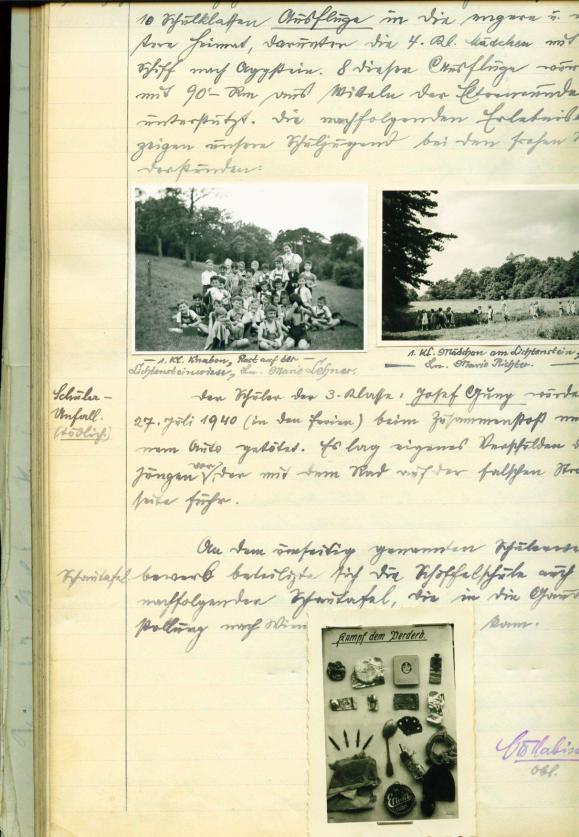 10 Schulklassen Ausflüge in die engere u.
tere Heimat, darunter die 4. Kl. Mädchen mit
Schiff nach Aggstein. 8 dieser Ausflüge
mit 90'- Rm aus Mitteln der
unterstützt. Die nachfolgenden
zeigen unsere Schuljugend bei den frohen
derstunden:
— 1. Kl. Knaben, Rast auf der —
Lichtensteinwiese, Ln. Marie Lehner.
1. Kl. Mädchen am Lichtenstein,
Ln. Marie Richter.
Schüler-
Unfall.
(tödlich)
Der Schüler der 3. Klasse: Josef Gung wurde
27. Juli 1940 (in den Ferien) beim Zusammenstoß
nem Auto getötet. Es lag eigenes Verschulden
Jungen vor, der mit dem Rad auf der falschen
seite fuhr.
Schautafel
An dem umseitig genannten
bewerb beteiligte sich die Schöffelschule auch
nachfolgender Schautafel, die in die
stellung nach Wien kam.
Kampf dem Verderb.